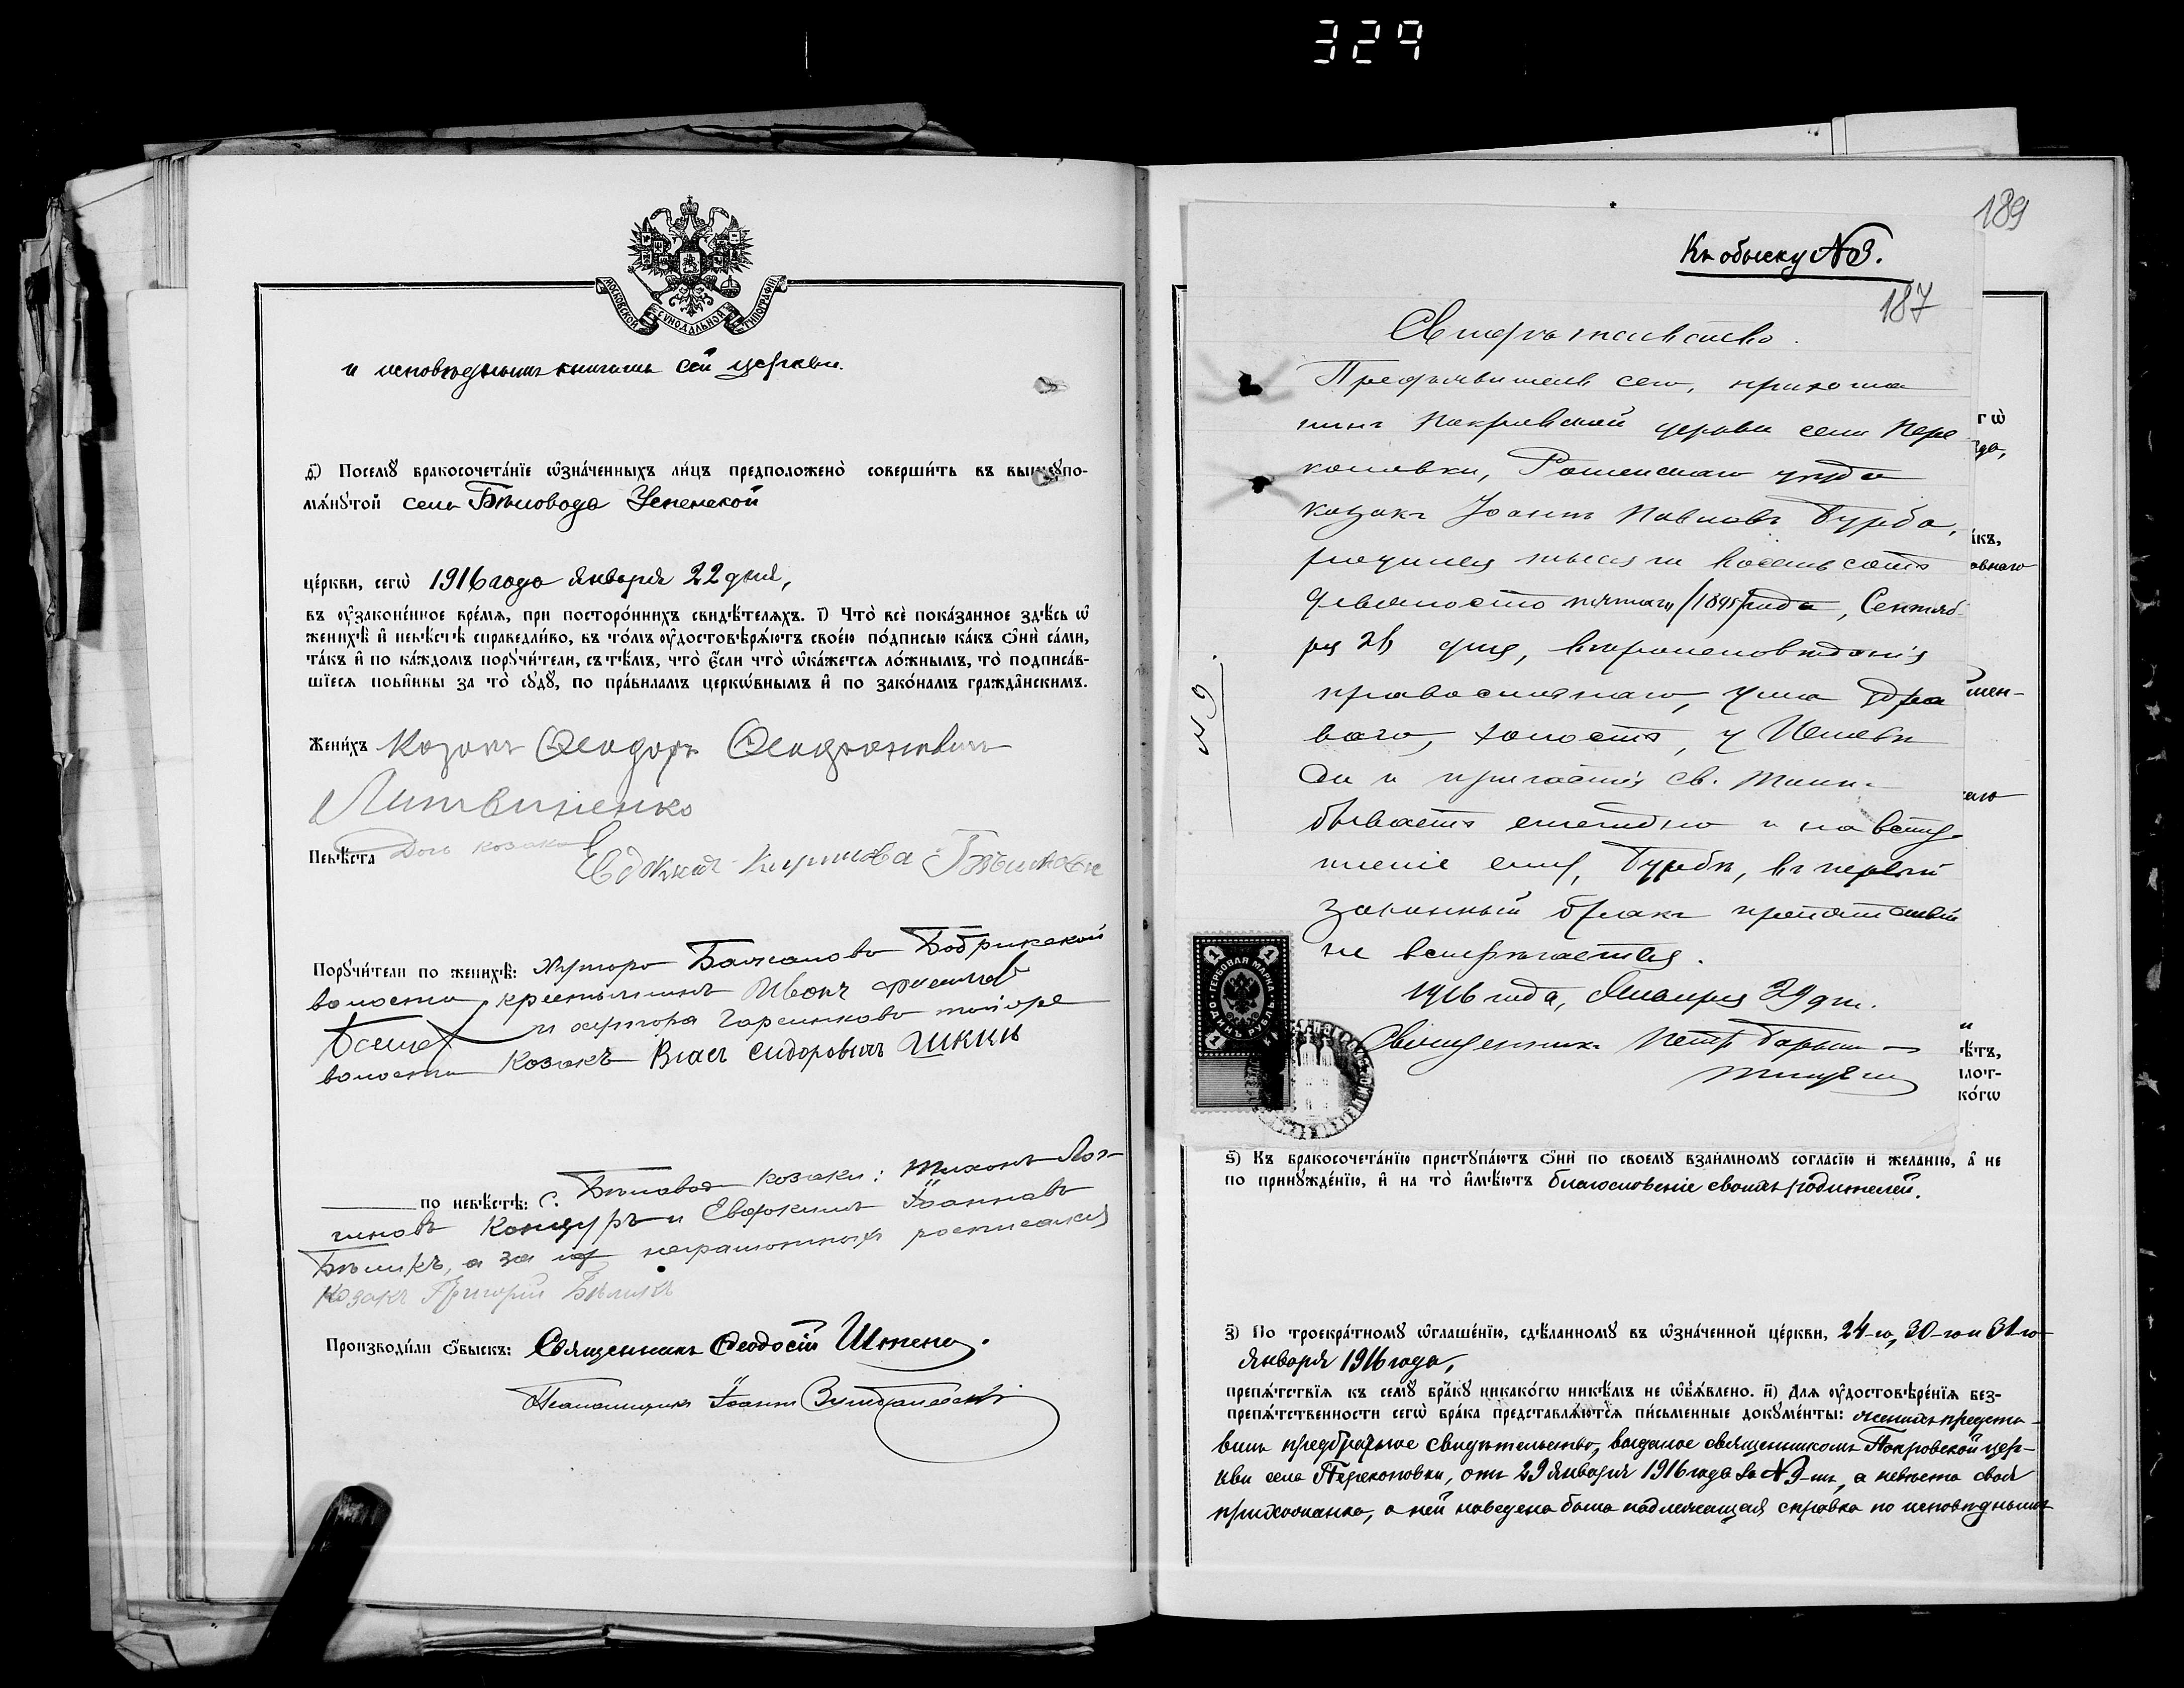 329
МОСКОВСКОЙ СУНОДАЛЬНОЙ ТИПОГРАФІИ
и исповѣднымъ книгамъ сей церкви.
д҃) Посемꙋ̀ бракосочета́нїе ѡ҆зна́ченныхъ ли́цъ предположено̀ соверши́ть въ вышеꙋпо-
мѧ́нꙋтой села Бѣловода Успенской
це́ркви, сегѡ̀ 1916 года Января 22 дня,
въ ᲂу҆зако́ненное вре́мѧ, при посторо́ннихъ свидѣ́телѧхъ. і҃) Что̀ всѐ пока́занное здѣ́сь ѡ҆
женихѣ̀ и҆ невѣ́стѣ справедли́во, въ то́мъ ᲂу҆достовѣрѧ́ютъ свое́ю по́дписью ка́къ ѻ҆нѝ са́ми,
та́къ и҆ по ка́ждомъ порꙋчи́тели, съ тѣ́мъ, что̀ є҆́сли что̀ ѡ҆ка́жетсѧ ло́жнымъ, то̀ подписа́в-
шїесѧ пови́нны за то̀ сꙋдꙋ̀, по пра́виламъ церко́внымъ и҆ по зако́намъ гражда̑нскимъ.
Жени́хъ Козакъ Ѳеодоръ
Литвиненко
Невѣ́ста Дочь козака Евдокия Кирилова
Порꙋчи́тели по женихѣ̀: Хутора Бобрикской
волости крестьянинъ Иванъ
и хутора
волости Козакъ Власъ Сидоровичъ
по невѣ́стѣ: с. Бѣловод козаки: Тихонъ Лог-
гиновъ и Евдокимъ Іоанновъ
Бѣликъ, а за неграмотныхъ росписался
Козакъ Григорій Бѣликъ
Производи́ли ѻ҆́быскъ: Священникъ Ѳеодосій
Псаломщикъ Іоаннъ
189
Къ обыску №3.
187
Свидѣтельство.
Предъявитель сего, прихожа
нинъ Покровской церкви села Пере
коповки, Роменскаго уѣзда
козакъ Іоаннъ Павловъ Бурба,
родился тысяча восемьсотъ
девяносто пятаго /1895/ года, Сентяб-
ря 26 дня, вѣроисповѣданія
православнаго, ума здра
ваго, холостъ, у Исповѣ
ди и причастія св. Таинъ
бываетъ ежегодно и на всту-
пленіе ему, Бурбѣ, въ первый
законный бракъ препятствій
не встрѣчается.
1916 года, Января 29 дня.
Священникъ Петръ
№ 9.
ГЕРБОВАЯ МАРКА
ОДИНЪ РУБЛЬ
1 1 1
ѕ҃) Къ бракосочета́нїю пристꙋпа́ютъ ѻ҆нѝ по своемꙋ̀ взаи́мномꙋ согла́сїю и҆ жела́нїю, а҆ не
по принꙋжде́нїю, и҆ на то̀ и҆мѣ́ютъ благословеніе своихъ родителей.
з҃) По троекра́тномꙋ ѡ҆глаше́нїю, сдѣ́ланномꙋ въ ѡ҆зна́ченной це́ркви, 24-го, 30-го и 31-го
Января 1916 года,
препѧ́тствїѧ къ семꙋ̀ бра́кꙋ никако́гѡ никѣ́мъ не ѡ҆б̾ѧ́влено. и҃) Длѧ ᲂу҆достовѣре́нїѧ без-
препѧ́тственности сегѡ̀ бра́ка представлѧ́ютсѧ пи́сьменные докꙋме́нты: женихъ предста-
вилъ предбрачное свидѣтельство, выданое священникомъ Покровской цер-
кви села Перекоповки, отъ 29 Января 1916 года за № 9-мъ, а невѣста своя
прихожанка, о ней наведена была надлежащая справка по исповѣднымъ